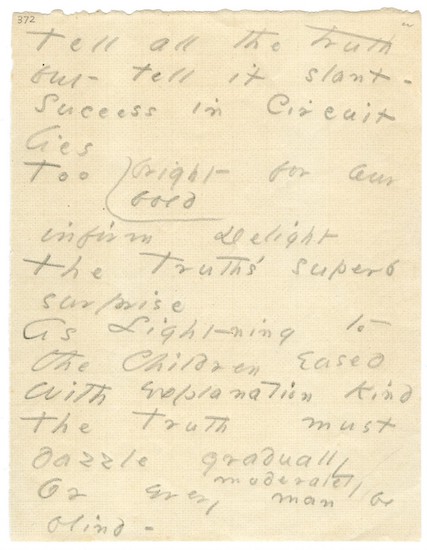 372
Tell all the truth
but - tell it slant -
Success in Circuit
lies
Too bright for our
bold
infirm Delight
The Truth's superb
surprise
As Lightning to
the Children eased
With explanation kind
The Truth must
dazzle gradually
moderately
Or every man be
blind -